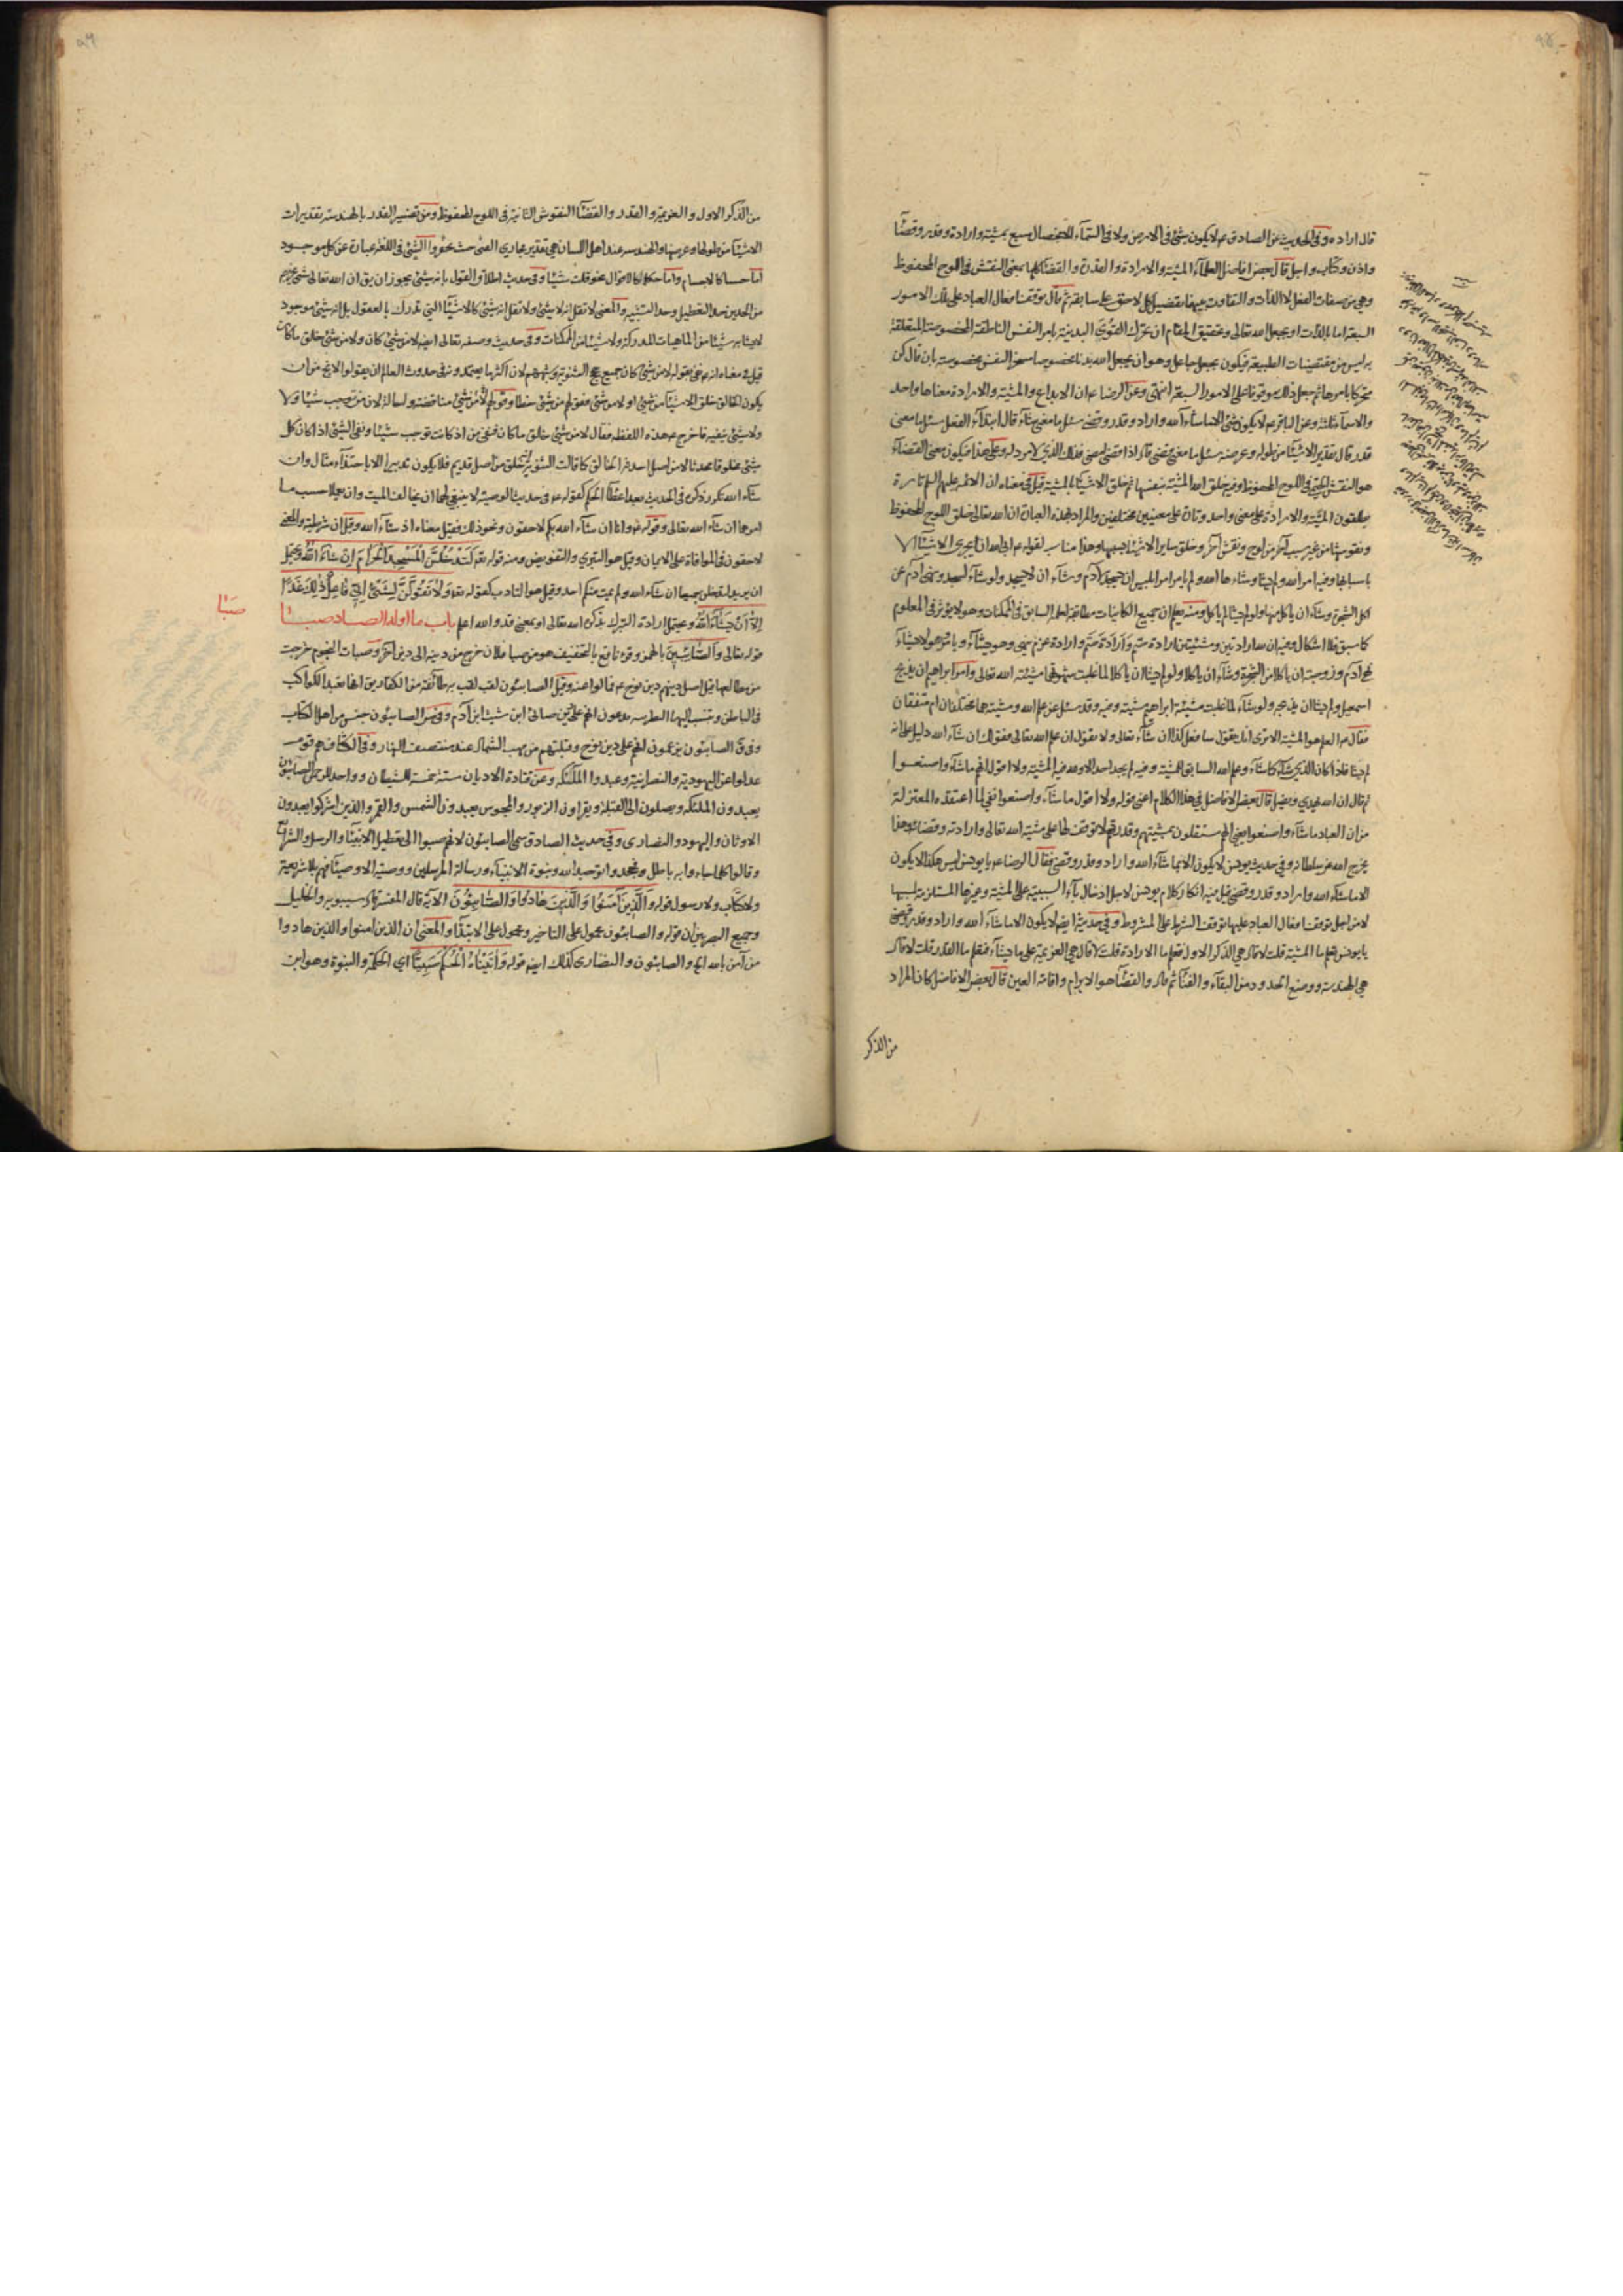 قال اراده وفى الحديث عن الصادق ع لا يكون شئ فى الارض ولا فى السماء الا بخصال سبع بمشية وارادة وقدر وقضآ
واذن وكتاب واجل قال بعض افاضل العلمآء المشية والارادة والقدرة والقضآ كلها بمعنى النقش فى اللوح المحفوظ
وهى من صفات الفعل لا الذات والتفاوت بينها بتفصيل كل لاحق على سابقه ثم قال توقف افعال العباد على تلك الامور
السبعة اما بالذات او بجعل الله تعالى وتحقيق المقام ان تحرك القوى البدنية بامر النفس الناطقة المخصوصة المتعلقة
به ليس من مقتضيات الطبيعة فيكون بجعل جاعل وهو ان يجعل الله بدنا مخصوصا مسخرا لنفس مخصوصة بان قال كن
متحركا بامرها ثم جعل ذلك موقوفا على الامور السبعة انتهى وعن الرضا ع ان الابداع والمشية والارادة معناها واحد
والاسمآء ثلثة وعن الباقر ع لا يكون شئ الا ما شآء الله واراد وقدر وقضى سئل ما معنى شآء قال ابتدآء الفعل سئل ما معنى
قدر قال تقدير الاشيآ من طوله وعرضه سئل ما معنى قضى قال اذا قضى امضى فذلك الذى لا مرد له وعلى هذا فيكون معنى القضآء
هو النقش الحتمى فى اللوح المحفوظ وفيه خلق الله المشية بنفسها ثم خلق الاشيآ بالمشية قيل فى معناه ان الائمه عليهم السلم تارة
يطلقون المشية والارادة على معنى واحد وتارة على معنيين مختلفين والمراد بهذه العبارة ان الله تعالى خلق اللوح المحفوظ
ونقوشها من غير سبب اخر من لوح ونقش اخر وخلق ساير الاشيآ بسببها وهذا مناسب لقوله ع ابى الله ان يجرى الاشيآ الا
باسبابها وفيه امر الله ولم يشا وشاء الله ولم يامر امر ابليس ان يسجد لادم وشآء ان لا يسجد ولو شآء لسجد ونهى ادم عن
اكل الشجرة وشآء ان ياكل منها ولو لم يشا لم ياكل ومنه يعلم ان جميع الكاينات مطابقة لعلم السابق فى الممكنات وهو لا يؤثر فى المعلوم
كما سبق فلا اشكال وفيه ان لله ارادتين ومشيتين ارادة حتم وارادة عزم ينهى وهو يشآء ويامر وهو لا يشآء
نهى ادم وزوجته ان ياكلا من الشجرة وشآء ان ياكلا ولو لم يشا ان ياكلا لما غلبت شهوتهما مشيئة الله تعالى وامر ابراهيم ان يذبح
اسمعيل ولم يشا ان يذبحه ولو شآء لما غلبت مشيئة ابراهيم مشيته وفيه وقد سئل عن علم الله ومشيته هما مختلفان ام متفقان
فقال ع العلم هو المشية الا ترى انك تقول سافعل كذا ان شآء تعالى ولا تقول ان علم الله تعالى فقولك ان شآء الله دليل على انه
لم يشا فاذا كان الذى شآء كما شآء وعلم الله السابق للمشية وفيه لم يجد احد الا ولله فيه المشية ولا اقول انهم ما شآؤ صنعوا
ثم قال ان الله يهدى ويضل قال بعض الافاضل فى هذا الكلام اعنى قوله ولا اقول ما شآء واصنعوا نفى لما اعتقده المعتزلة
من ان العباد ما شآء واصنعوا يعنى انهم مستقلون بمشيتهم وقدرتهم لا توقف لها على مشية الله تعالى وارادته وقضائه وهذا
يخرج الله عن سلطانه وفى حديث يونس لا يكون الا بما شآء الله واراد وقدر وقضى فقال الرضا ع يا يونس ليس هكذا لا يكون
الا ما شآء الله واراد وقدر وقضى قيل فيه انكار كلام يونس لاجل ادخال بآء السببية على المشية وغيرها المستلزمة لسببها
لا من اجل توقف افعال العباد عليها توقف الشرط على المشروط وفى حديثه ايضا لا يكون الا ما شآء الله واراد وقدر وقضى
يا يونس تعلم ما المشية قلت لا قال هى الذكر الاول فتعلم ما الارادة قلت لا قال هى العزيمة على ما يشآء فتعلم ما القدر قلت لا قال
هى الهندسة ووضع الحدود من البقآء والفنآ ثم قال والقضآ هو الابرام واقامة العين قال بعض الافاضل كان المراد
من الذكر
من الذكر الاول والعزيمة والقدر والقضآ النقوش الثابتة فى اللوح المحفوظ ومن تفسير القدر بالهندسة تقديرات
الاشيآ من طولها وعرضها والهندسه عند اهل اللسان هى تقدير مجارى القنى حيث تحفر والشئ فى اللغة عبارة عن كل موجود
اما حسا كالاجسام واما حكما كالاقوال نحو قلت شيئا وفى حديث اطلاق القول بانه شئ يجوز ان يق ان الله تعالى شئ يخرجه
من الحدين حد التعطيل وحد التشبيه والمعنى لا تقل انه لا شئ ولا تقل انه شئ كالاشيآ التى تدرك بالعقول بل انه شئ موجود
لا يشابه شيئا من الماهيات المدركة ولا شيئا من الممكنات وفى حديث وصفه تعالى ايضا لا من شئ كان ولا من شئ خلق ما كان
قيل فى معناه انه ع نفى بقوله لا من شئ كان جميع حجج الثنوية وشبههم لان اكثر ما يعتمدونه فى حدوث العالم ان يقولوا لا يخ من ان
يكون الخالق خلق الاشيآ من شئ او لا من شئ فقولهم من شئ خطا وقولهم لا من شئ مناقضة واحالة لان من توجب شيئا ولا
ولا شئ ينفيه فاخرج ع هذه اللفظه فقال لا من شئ خلق ما كان فنفى من اذ كانت توجب شيئا ونفى الشئ اذا كان كل
شئ مخلوقا محدثا لا من اصل احدثه الخالق كما قالت الثنوية انه خلق من اصل قديم فلا يكون تدبير الا باحتذآء مثال وان
شآء الله تكرر ذكره فى الحديث بعد اعطآ الحكم كقوله ع فى حديث الوصية لا ينبغى لهما ان يخالفا الميت وان يعملا حسب ما
امرهما ان شآء الله تعالى وقوله ع وانا ان شآء الله بكم لاحقون ونحو ذلك فقيل معناه اذ شآء الله وقيل ان شرطية والمعنى
لاحقون فى الموافاة على الايمان وقيل هو التبرى والتفويض ومنه قوله تع لتدخلن المسجد الحرام ان شاء الله ويحتمل
ان يريد لتدخلن جميعا ان شآء الله ولم يمت منكم احد وقيل هو التادب كقوله تعا ولا تقولن لشئ انى فاعل ذلك غدا
الا ان يشآء الله ويحتمل ارادة التبرك بذكر الله تعالى او بمعنى قد والله اعلم باب ما اوله الصاد صبا
صبا
قوله تعالى والصابئين بالهمز وقرء نافع بالتخفيف هو من صبا فلان خرج من دينه الى دين اخر وصبات النجوم خرجت
من مطالعها قيل اصل دينهم دين نوح ع فمالوا عنه وقيل الصابئون لقب لقب به طائفة من الكفار يق انها تعبد الكواكب
فى الباطن وتنسب الى النصرانيه يدعون انهم على دين صابئ ابن شيث ابن آدم وفى ص الصابئون جنس من اهل الكتاب
وفى ق الصابئون يزعمون انهم على دين نوح وقبلتهم من مهب الشمال عند منتصف النهار وفى الكشاف هم قوم
عدلوا عن اليهودية والنصرانية وعبدوا الملئكه وعن قتادة الاديان ستة خمسة للشيطان وواحد للرحمن الصابئون
يعبدون الملئكه ويصلون الى القبلة ويقراون الزبور والمجوس يعبدون الشمس والقمر والذين اشركوا يعبدون
الاوثان واليهود والنصارى وفى حديث الصادق سمى الصابئون لانهم صبوا الى تعطيل الانبيآ والرسل والشرائع
وقالوا كلما جاءوا به باطل وجحدوا توحيد الله ونبوة الانبيآء ورسالة المرسلين ووصية الاوصيآء فهم بلا شريعة
ولا كتاب ولا رسول قوله والذين آمنوا والذين هادوا والصابئون الاية قال المفسر قال سيبويه والخليل
وجميع البصريين ان قوله والصابئون محمول على التاخير ومحمول على الابتدآ والمعنى ان الذين امنوا والذين هادوا
من آمن بالله الخ والصابئون والنصارى كذلك ايضا قوله وآتيناه الحكم صبيا اى الحكمة والنبوة وهو ابن